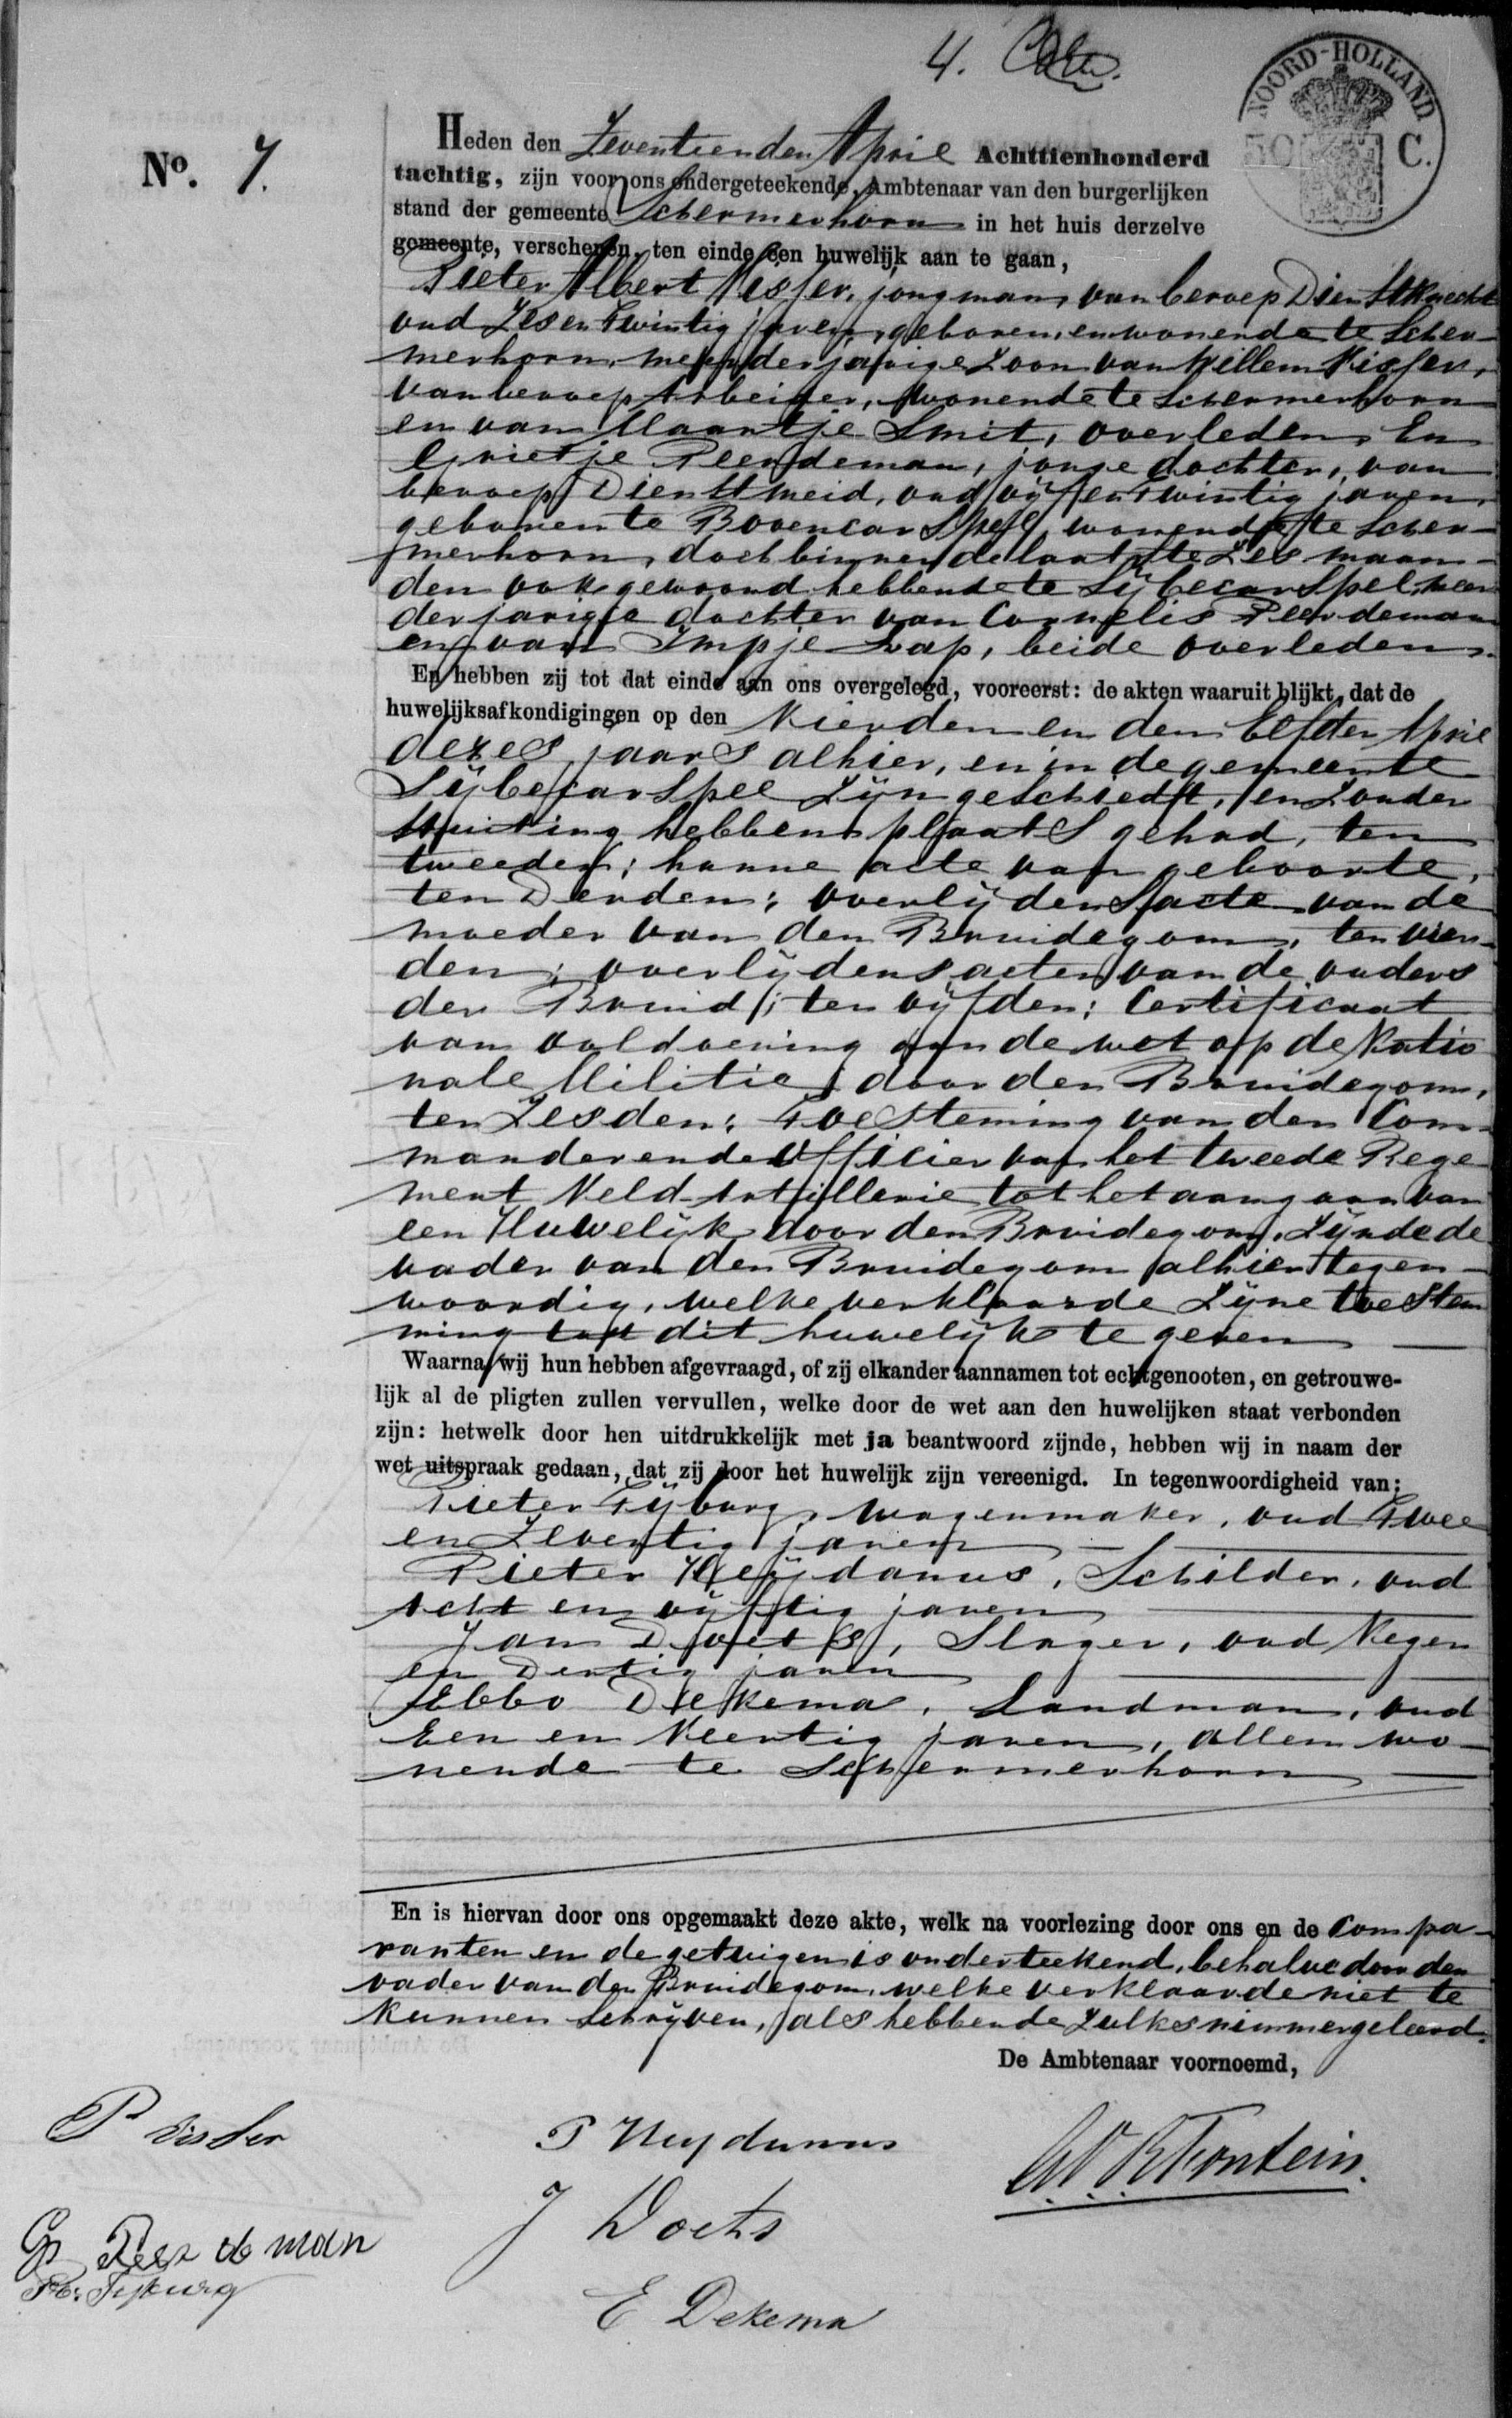 4.
NOORD-HOLLAND
50 C.
No. 7.
Heden den Zeventienden April Achttienhonderd
tachtig, zijn voor ons ondergeteekende, Ambtenaar van den burgerlijken
stand der gemeente Schermerhorn in het huis derzelve
gemeente, verschenen, ten einde een huwelijk aan te gaan,
Pieter Albert Visser, jongman, van beroep Dienstknecht
oud Zes en Twintig jaren, geboren, en wonende te Scher-
merhorn, meerderjarige Zoon van Willem Visser,
van beroep Arbeider, wonende te Schermerhorn
en van Maartje Smit, overleden, En
Grietje Peerdeman, jonge dochter, van
beroep Dienstmeid, oud vijf en twintig jaren,
geboren te Bovencarspel, wonende te Scher-
merhorn, doch binnen de laatste Zes maan-
den ook gewoond hebbende te Sijbecarspel, meer
derjarige dochter van Cornelis Peerdeman
en van Impje Lap, beide overleden.
En hebben zij tot dat einde aan ons overgelegd, vooreerst: de akten waaruit blijkt, dat de
huwelijksafkondigingen op den Vierden en den Elfden April
dezes jaars alhier, en in de gemeente
Sijbecarspel zijn geschiedt, en zonder
stuiting hebben plaats gehad, ten
tweeden; hunne acte van geboorte,
ten Derden; overlijdensacte van de
moeder van den Bruidegom, ten vier-
den; overlijdensacten van de ouders
der Bruid; ten vijfden; Certificaat
van voldoening aan de wet op de Natio
nale Militie door den Bruidegom,
ten Zesden; Toesteming van den Com-
manderende Officier van het tweede Rege
ment Veld-Artillerie tot het aangaan van
een Huwelijk door den Bruidegom, Zijnde de
vader van den Bruidegom alhier tegen-
woordig, welke verklaarde Zijne toestem
ming tot dit huwelijk te geven
Waarna wij hun hebben afgevraagd, of zij elkander aannamen tot echtgenooten, en getrouwe-
lijk al de pligten zullen vervullen, welke door de wet aan den huwelijken staat verbonden
zijn: hetwelk door hen uitdrukkelijk met ja beantwoord zijnde, hebben wij in naam der
wet uitspraak gedaan, dat zij door het huwelijk zijn vereenigd. In tegenwoordigheid van:
Pieter Tijburg, wagenmaker, oud Twee
en Zeventig jaren
Pieter Heijdanus, Schilder, oud
Acht en vijftig jaren
Jan Doets, Slager, oud Negen
en Dertig jaren
Ebbo Dekema, Landman, oud
Een en Veertig jaren, allen wo-
nende te Schermerhorn
En is hiervan door ons opgemaakt deze akte, welk na voorlezing door ons en de Compa-
ranten en de getuigen is onderteekend, behalve door den
vader van den Bruidegom, welke verklaarde niet te
kunnen schrijven, als hebbende Zulks nimmer geleerd.
De Ambtenaar voornoemd,
P Visser
P Heydanus
Fontein.
G Peerdeman
J Doets
Pr. Tijburg
E Dekema